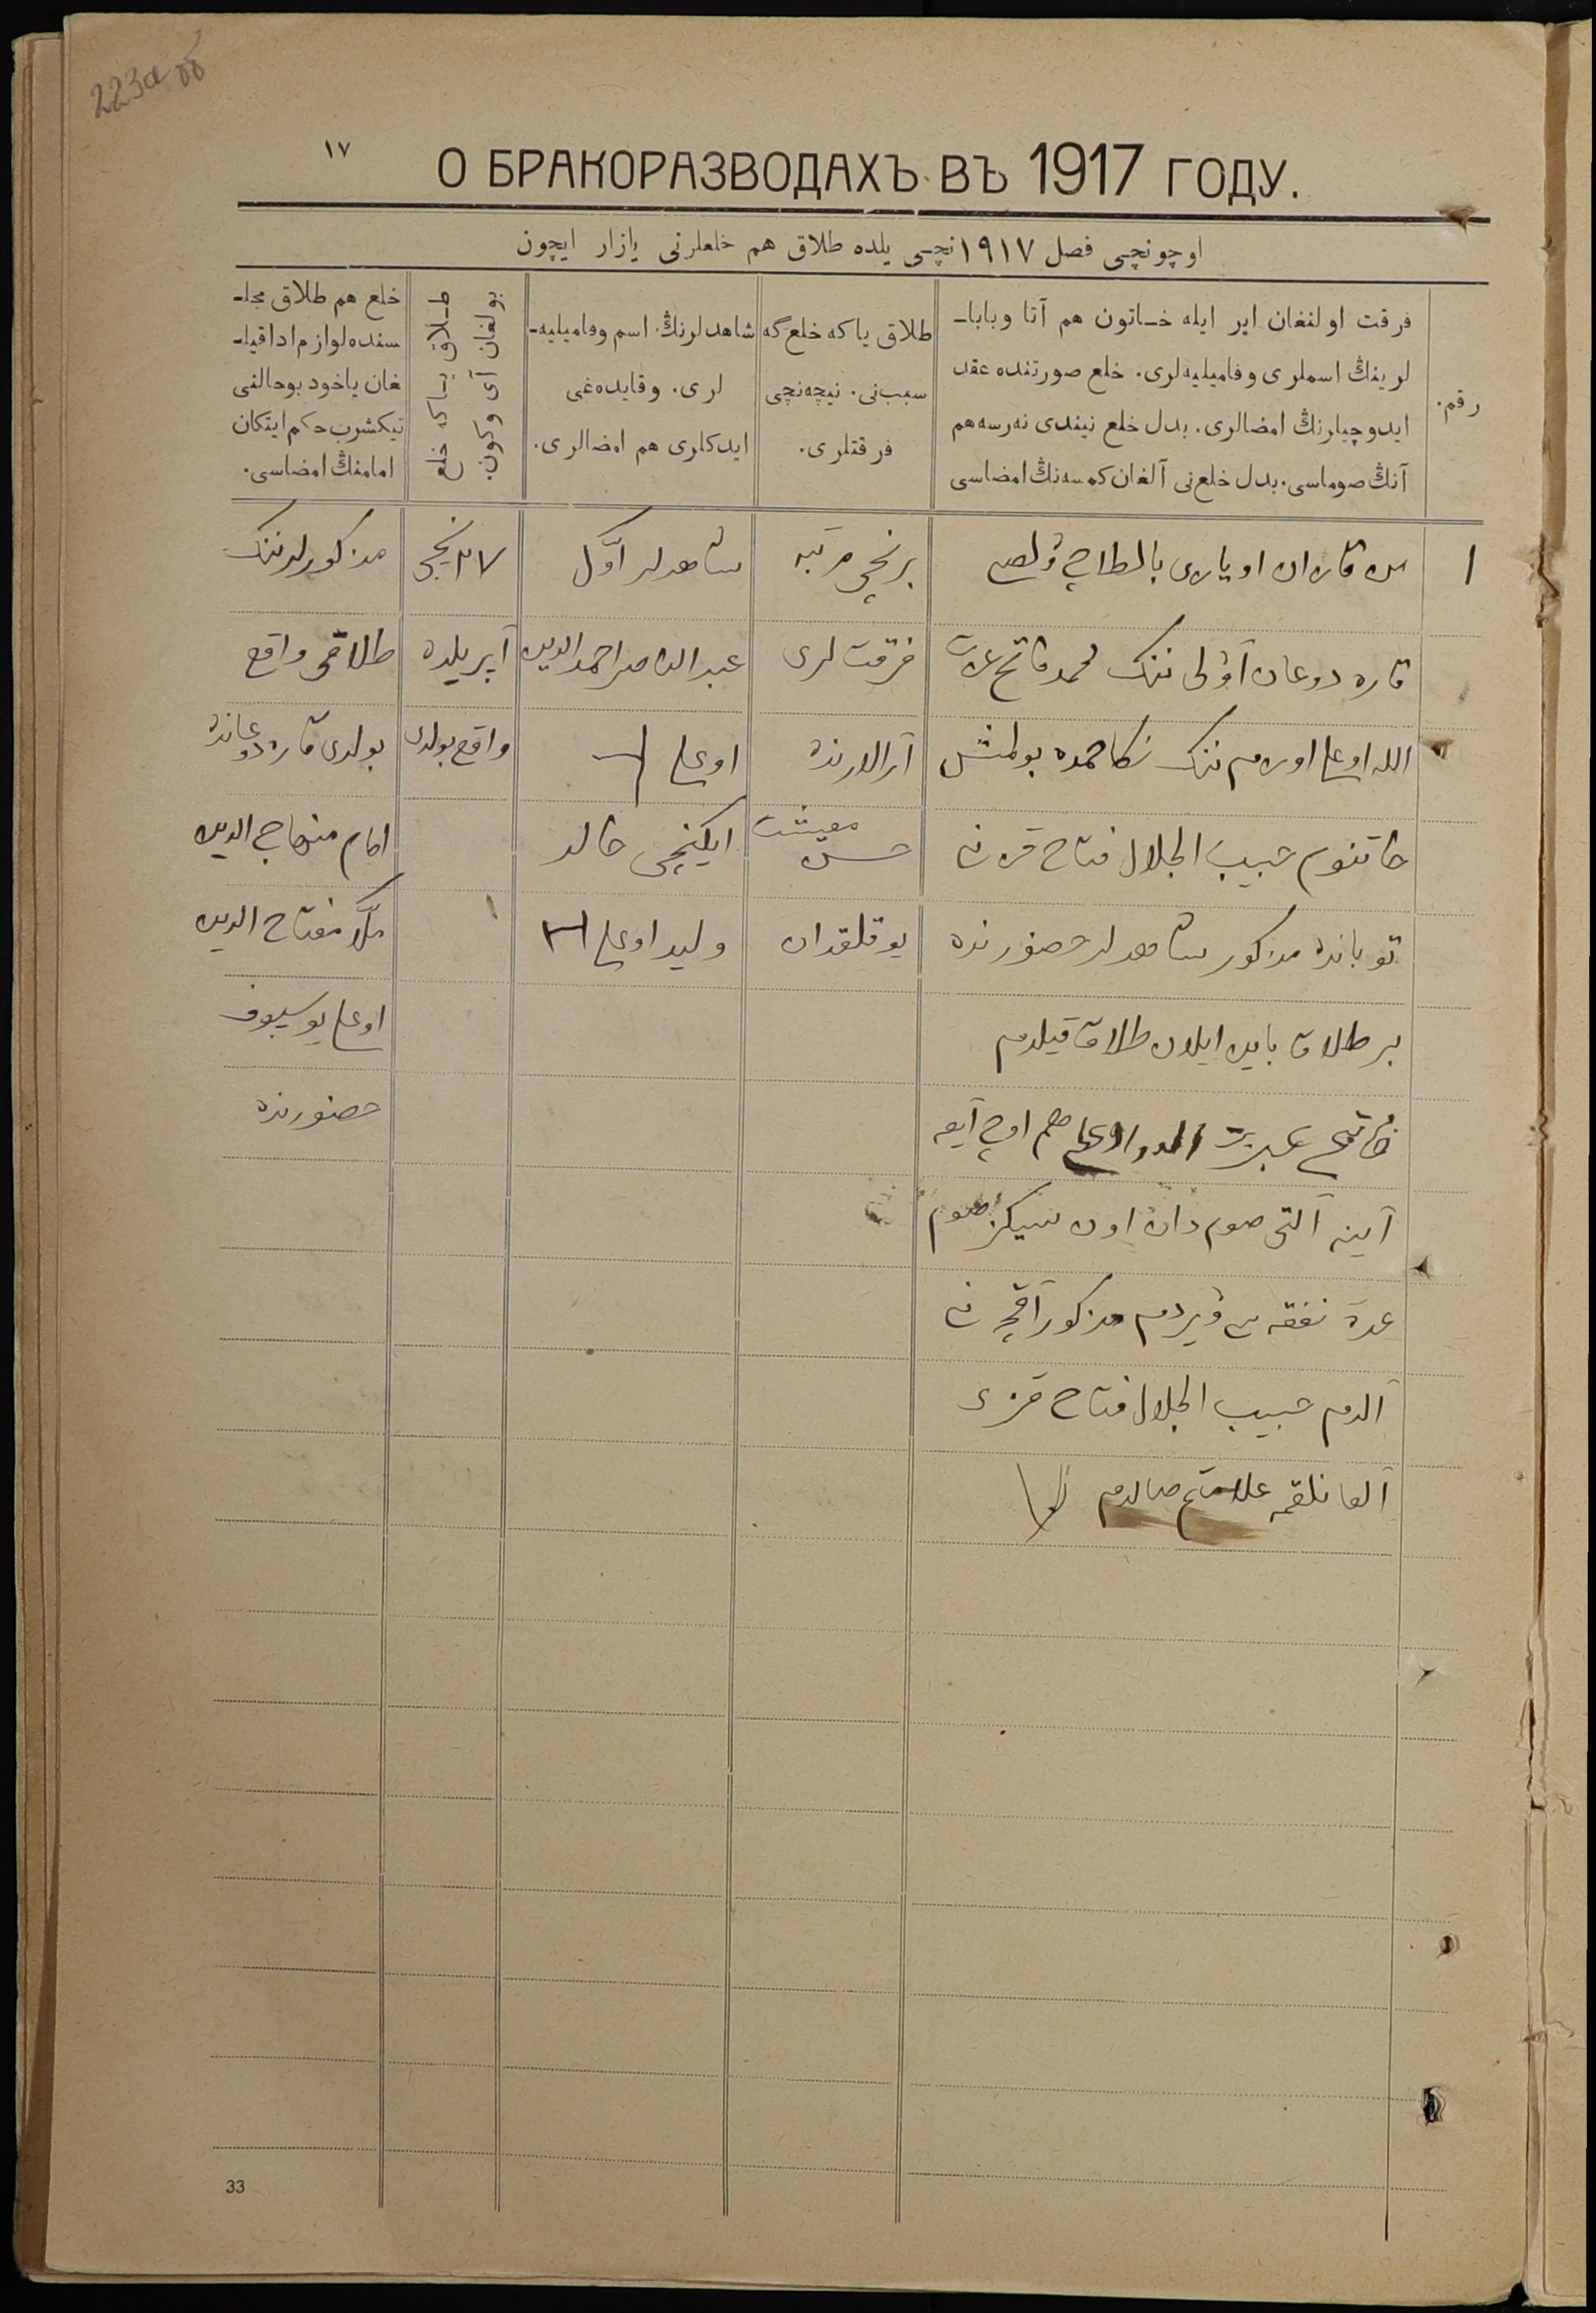 223а об
١٧
О БРАКОРАЗВОДАХЪ ВЪ 1917 ГОДУ.
اوچونچی فصل ١٩١٧ نچی یلده طلاق هم خلعلرنی یازار ایچون
رقم.
فرقت اولنغان ایر ایله خاتون هم آتا وبابا-
لرینڭ اسملری وفامیلیه‌لری. خلع صورتنده عقد
ایدوچیلرنڭ امضالری. بدل خلع نیندی نه‌رسه هم
آنڭ صوماسی. بدل خلع‌نی آلغان کمسه‌نڭ امضاسی
طلاق یا که خلع‌گه
سبب‌نی. نیچه‌نچی
فرقتلری.
شاهدلرنڭ اسم وفامیلیه-
لری. وقایده‌غی
ایدکلری هم امضالری.
طلاق یاکه خلع
بولغان آی وکون.
خلع هم طلاق مجلـ
سنده لوازم ادا قیلـ
غان یاخود بو حالنی
تیکشرب حکم ایتکان
امامنڭ امضاسی.
١
من قازان اویازی بالطاچ ولصی
قاره دوغان آولی ننک محمد فاتح عبرت
الله اوغلی اوزم ننک نکاحمده بولمش
خاتنوم حبیب الجلال فتاح قزین
توبانده مذکور شاهدلر حضورنده
بر طلاق باین ایلان طلاق قیلدم
فاتح عبرت الله اوغلی هم اوچ آیغه
آینه آلتی صوم دان اون سیکز صوم
عدة نفقه سی ویردم مذکور آقچه نی
آلدم حبیب الجلال فتاح قزی
آلغانلقمه علامتم صالدم
برنچی مرتبه
فرقت لری
آرالارنده
حسن معیشت
یوقلقدان
شاهدلر اوّل
عبد الناصر احمد الدین
اوغلی
ایکنچی خالد
ولید اوغلی
٢٧ نچی
آپریلده
واقع بولدی
مذکورلرننک
طلاقی واقع
بولدی قاره دوغانده
امام منهاج الدین
ملّا مفتاح الدین
اوغلی یوسیوف
حضورنده
33